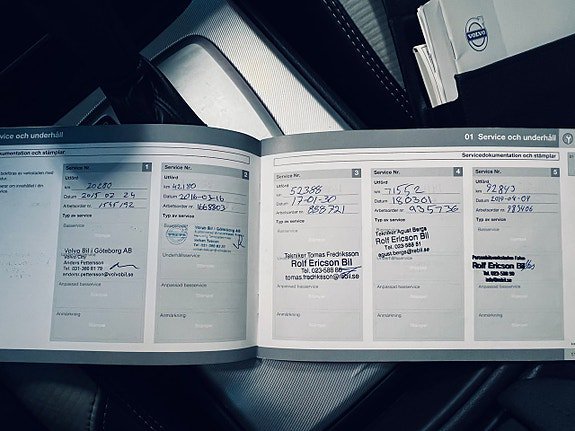 VOLVO
Service och underhåll
okumentation och stämplar
Service Nr. 1
Utförd
km 20280
Datum 2015 02 24
Arbetsorder nr. 1545192
Typ av service
Basservice
Volvo Bil i Göteborg AB
Volvo City
Anders Pettersson
Tel. 031-380 81 79
anders.pettersson@volvobil.se
Anpassad basservice
Stämpel
Anmärkning
Service Nr. 2
Utförd
km 42180
Datum 2016-03-16
Arbetsorder nr. 1668803
Typ av service
Basservice
Volvo Bil i Göteborg AB
Underhållsservice
Anpassad basservice
Stämpel
Anmärkning
01 Service och underhåll
Servicedokumentation och stämplar
Service Nr. 3
Utförd
km 52388
Datum 17-01-30
Arbetsorder nr.
Typ av service
Basservice
Tekniker Tomas Fredriksson
Rolf Ericson Bil
Tel. 023-588 88
Anpassad basservice
Stämpel
Anmärkning
Service Nr. 4
Utförd
km 71552
Datum 180301
Arbetsorder nr. 935736
Typ av service
Tekniker August Bergs
Rolf Ericson Bil
Tel. 023-588 81
Anpassad basservice
Stämpel
Anmärkning
Service Nr. 5
Utförd
km
Datum
Arbetsorder nr. 983406
Typ av service
Basservice
Rolf Ericson Bil
Anpassad basservice
Stämpel
Anmärkning